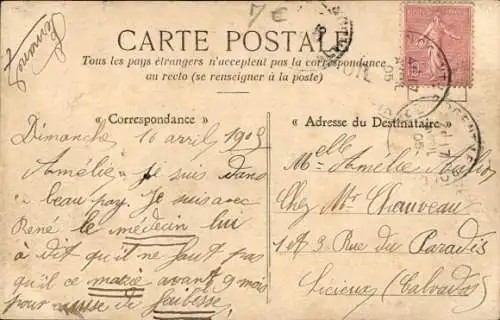 7 €
CARTE POSTALE
Tous les pays étrangers n'acceptent pas la correspondance
au recto (se renseigner à la poste)
« Correspondance »
Dimanche 16 avril 1905
Amélie je suis dans
beau pay. Je suis avec
René le médecin lui
a dit qu'il ne faut pas
qu'il ce marie avant 9 mois
pour cause de faiblesse
« Adresse du Destinataire »
Melle Amélie
Chez Mr Chauveau
1 et 3 Rue du Paradis
Lisieux (Calvados)